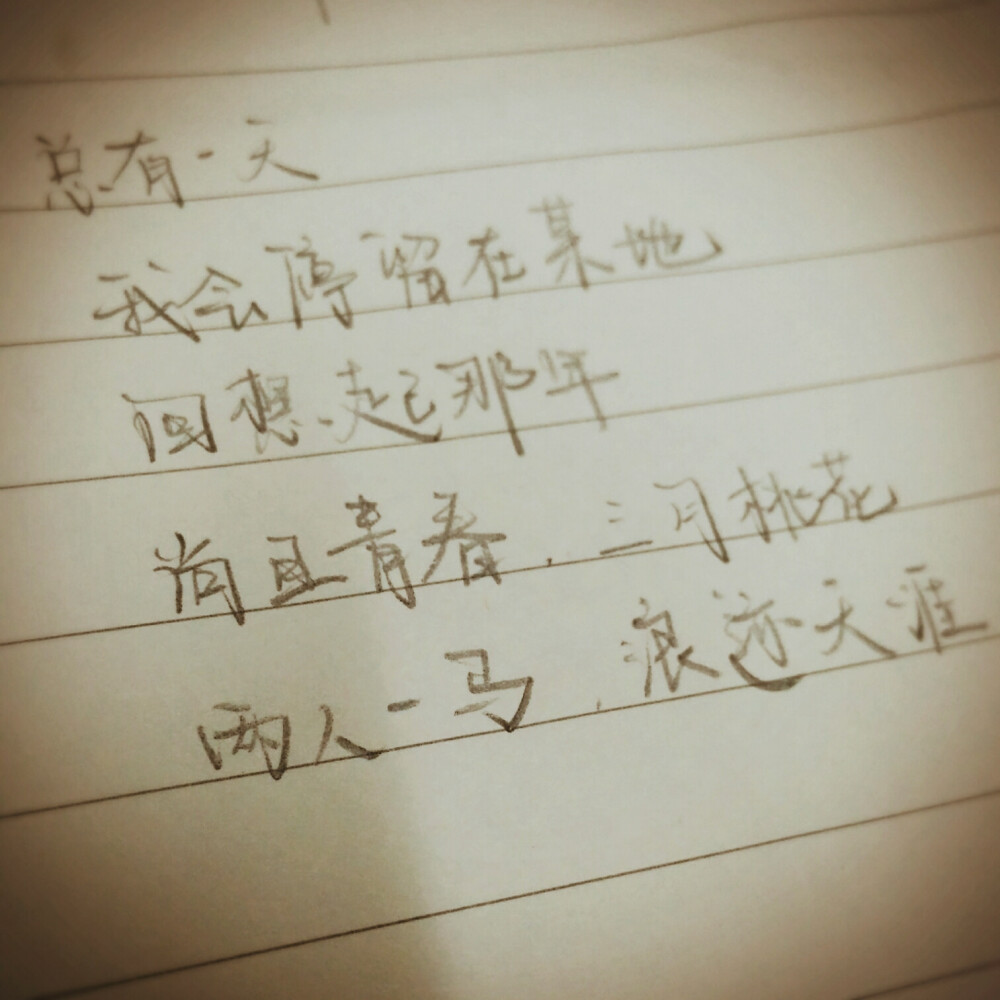 总有一天
我会停留在某地
回想起那年
尚且青春，三月桃花
两人一马，浪迹天涯